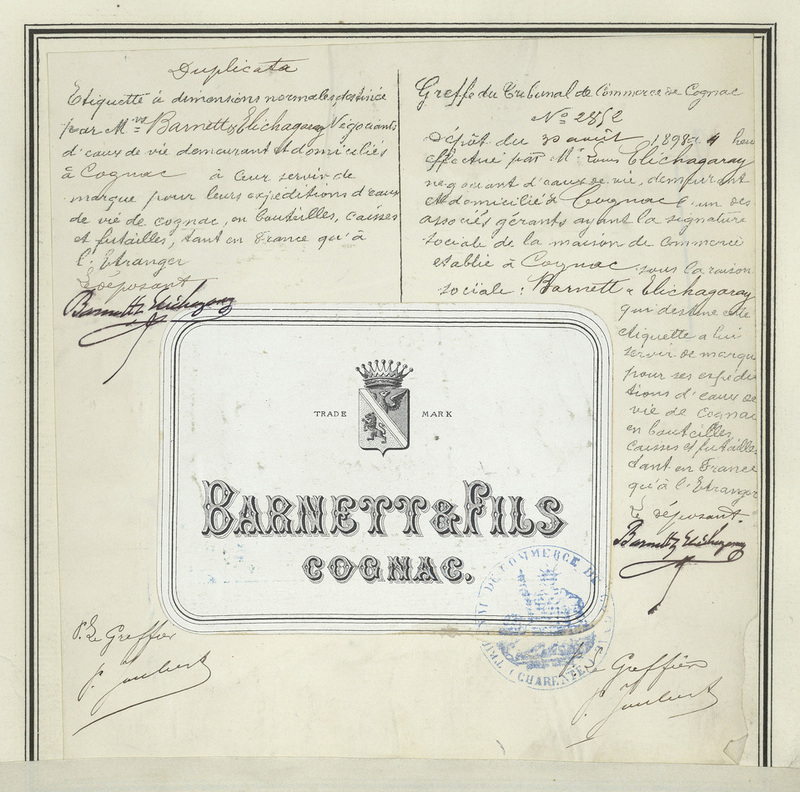 Duplicata
Etiquette à dimensions normales destinée
par M.rs Barnett & Elichagaray Négociants
d'eaux de vie demeurant et domiciliés
à Cognac à leur servir de
marque pour leurs expéditions d'eaux
de vie de cognac, en bouteilles, caisses
et futailles, tant en France qu'à
l'Etranger
Le déposant
Barnett & Elichagaray
Greffe du Tribunal de Commerce de Cognac
No 2852
Dépôt du 30 août 1898 à 4 heu
effectué par Mr. Louis Elichagaray
négociant d'eaux de vie, demeurant
et domicilié à Cognac l'un des
associés gérants ayant la signature
sociale de la maison de commerce
établie à Cognac sous la raison
sociale: Barnett & Elichagaray
qui destine cette
étiquette à lui
servir de marque
pour ses expédi
tions d'eaux de
vie de Cognac
en bouteilles,
caisses et futailles
tant en France
qu'à l'Etranger
Le déposant.
Barnett & Elichagaray
TRADE MARK
BARNETT & FILS
COGNAC.
TRIBUNAL DE COMMERCE DE
(CHARENTE)
P. Le Greffier
P. Joubert
Le Greffier
P. Joubert